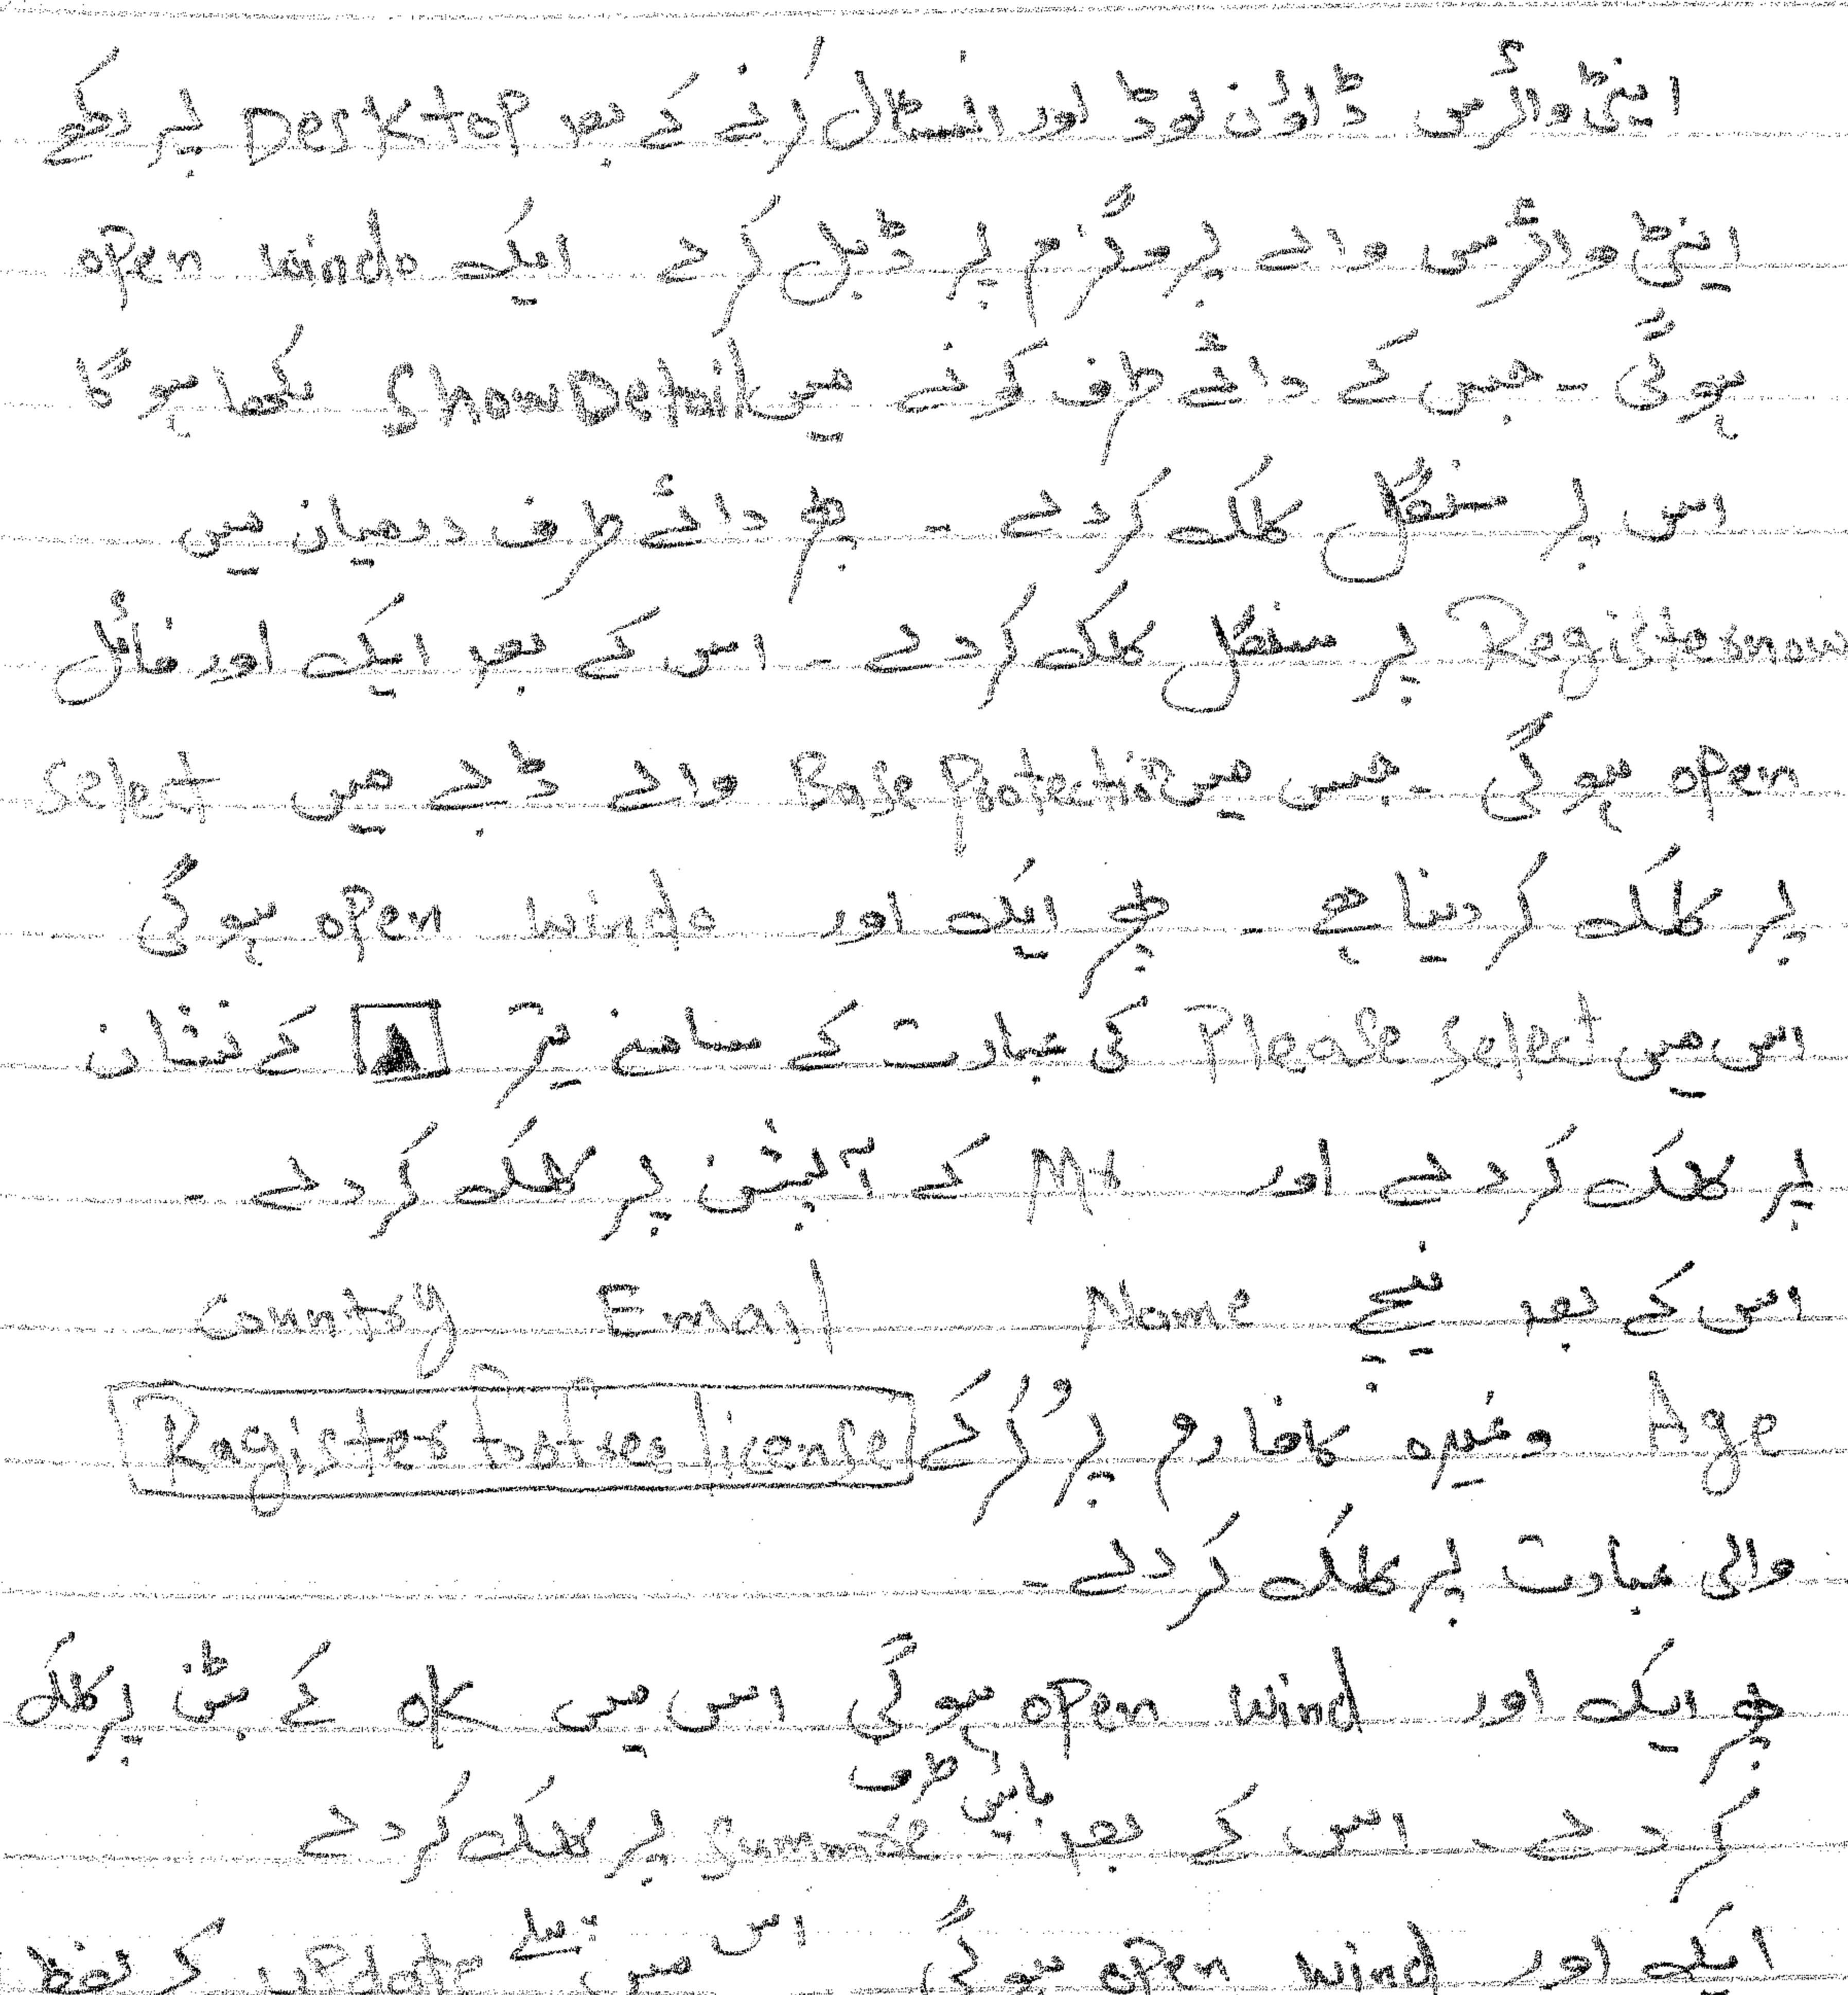 اینٹی وائرس ڈاؤن لوڈ اور انسٹال کرنے کے بعد Desktop پر رکھے
اینٹی وائرس والے پروگرام پر ڈبل کرے ایک windo open
ہوگی ۔ جس کے دائے طرف کونے میں Show Detail لکھا ہوگا
اس پر سنگل کلک کردے ۔ پھر دائے طرف درمیان میں
Registernow پر سنگل کلک کردے ۔ اس کے بعد ایک اور فائل
open ہوگی ۔ جس میں Base Protection والے ڈبے میں Select
پر کلک کر دینا ہے ۔ پھر ایک اور windo open ہوگی
اس میں Please Select کی عبارت کے سامنے تیر ▲ کے نشان
پر کلک کردے اور Mr کے آپشن پر کلک کردے ۔
اس کے بعد نیچے Name Email Country
Age وغیرہ کا فارم پُر کرکے Ragister for free license
والی عبارت پر کلک کردے ۔
پھر ایک اور wind open ہوگی اس میں ok کے بٹن پر کلک
کردے ۔ اس کے بعد بائیں طرف Summre پر کلک کردے
ایک اور wind open ہوگی اس میں پہلے update کے لفظ